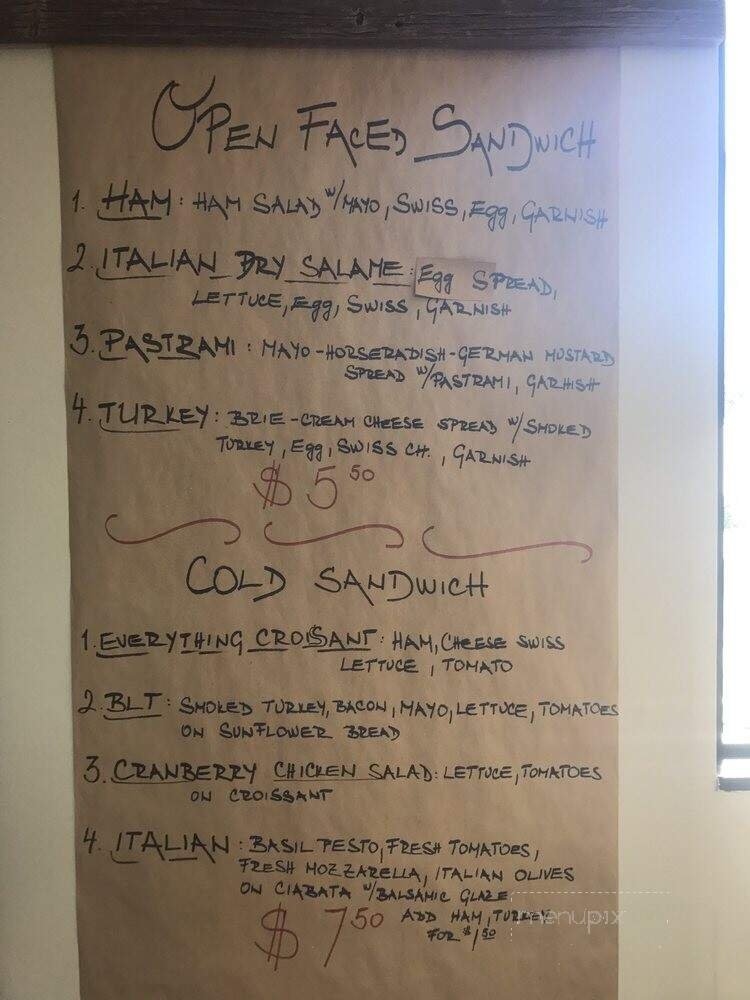 OPEN FACED SANDWICH
1. HAM: HAM SALAD W/MAYO, SWISS, Egg, GARNISH
2. ITALIAN DRY SALAME: Egg SPREAD,
LETTUCE, Egg, SWISS, GARNISH
3. PASTRAMI: MAYO-HORSERADISH-GERMAN MUSTARD
SPREAD W/PASTRAMI, GARHISH
4. TURKEY: BRIE-CREAM CHEESE SPREAD W/SMOKED
TURKEY, Egg, SWISS CH., GARNISH
$ 5 50
COLD SANDWICH
1. EVERYTHING CROISSANT: HAM, CHEESE SWISS
LETTUCE, TOMATO
2. BLT: SMOKED TURKEY, BACON, MAYO, LETTUCE, TOMATOES
ON SUNFLOWER BREAD
3. CRANBERRY CHICKEN SALAD: LETTUCE, TOMATOES
ON CROISSANT
4. ITALIAN: BASIL PESTO, FRESH TOMATOES,
FRESH MOZZARELLA, ITALIAN OLIVES
ON CIABATA W/BALSAMIC GLAZE
$ 7 50 ADD HAM, TURKEY
FOR $1 50
menupix